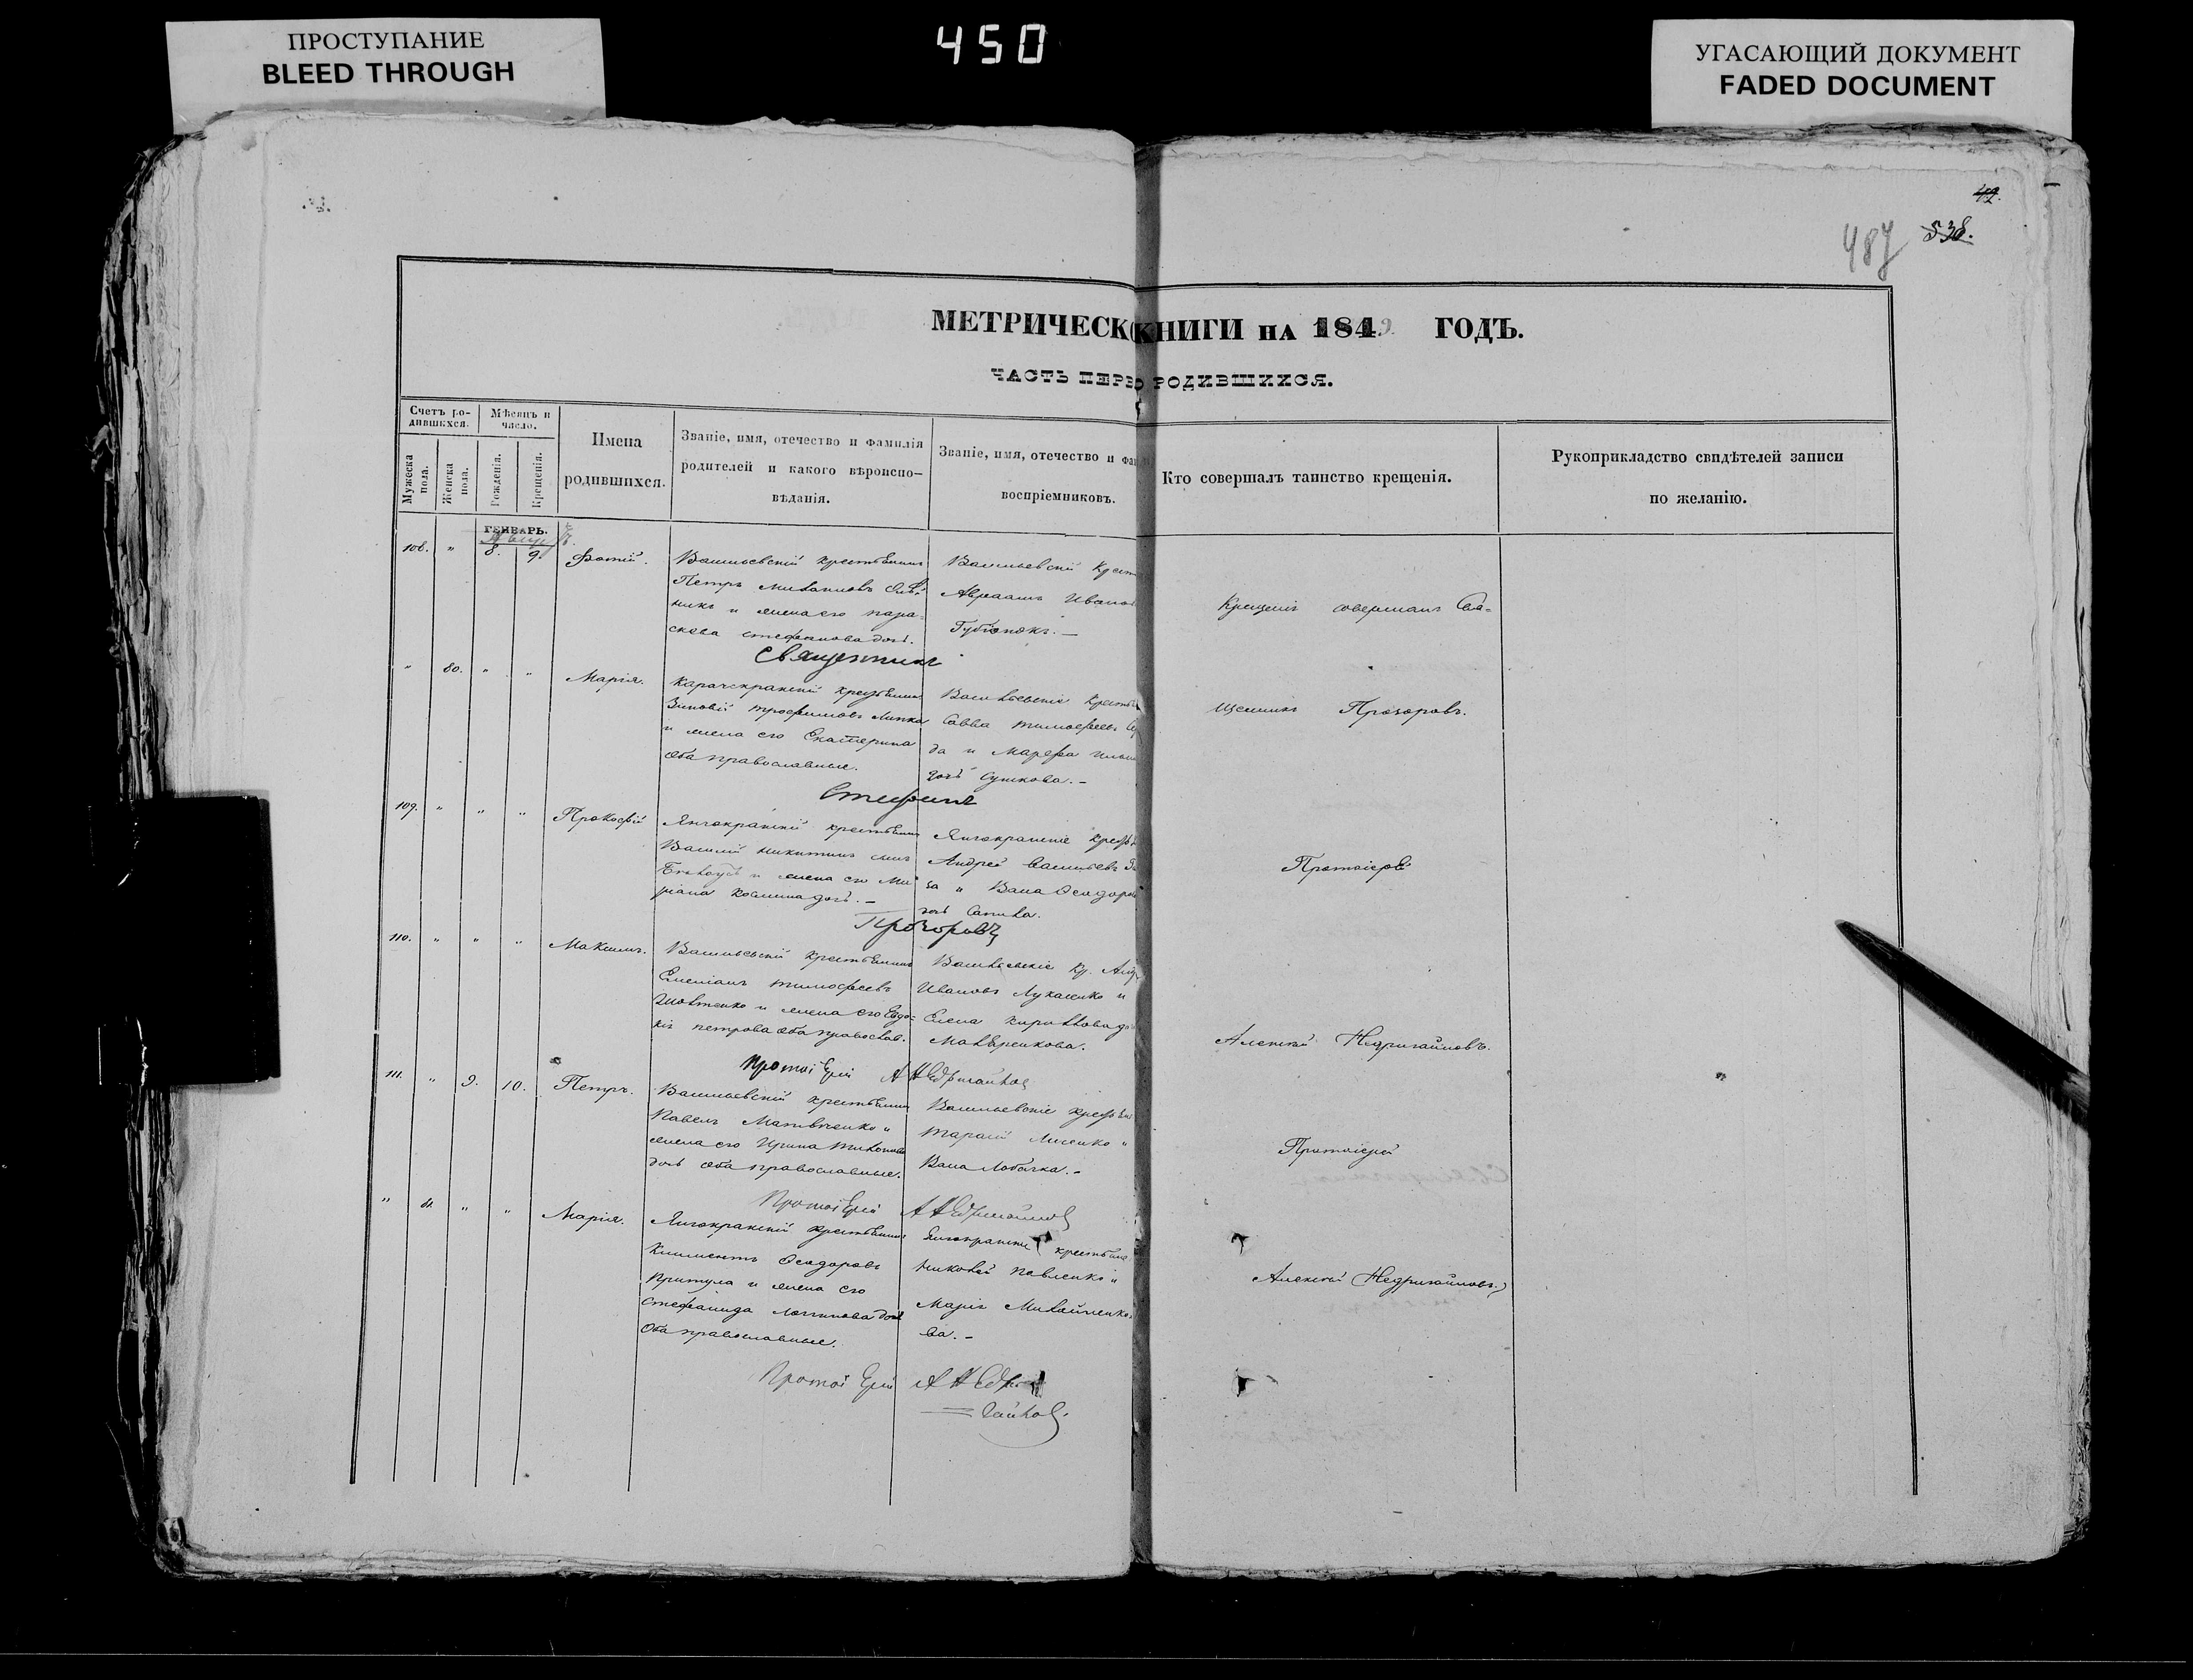 ПРОСТУПАНИЕ
BLEED THROUGH
450
УГАСАЮЩИЙ ДОКУМЕНТ
FADED DOCUMENT
42.
487 538.
МЕТРИЧЕСК КНИГИ НА 1849. ГОДЪ.
ЧАСТЬ ПЕРВО РОДИВШИХСЯ.
Счетъ ро-
дившихся.
Мужеска
пола.
Женска
пола.
Мѣсяцъ и
число.
Рожденія.
Крещенія.
Имена
родившихся.
Званіе, имя, отечество и фамилія
родителей и какого вѣроиспо-
вѣданія.
Званіе, имя, отечество и фам
воспріемниковъ.
Кто совершалъ таинство крещенія.
Рукоприкладство свидѣтелей записи
по желанію.
ГЕНВАРЬ.
108. " 8. 9. Фотій.
Васильевскій крестьянинъ
Петръ Михаиловъ
никъ и жена его Пара-
скева Стефанова дочь.
Васильевскій крест
Авраамъ Иванов
Крещеніе совершалъ Свя-
Священникъ
" 80. " " Марія.
крестьянинъ
Зиновій Трофимовъ Липка
и жена его Екатерина
оба православные.
Васильевскіе крестья
Савва Тимофеевъ
да и Марфа Ильи
дочь Сушкова.-
щенникъ Прозоровъ.
Стефанъ
109. " " " Прокофій
Янчокракскій крестьянинъ
Василій Никитинъ сынъ
и жена его Ма
ріана Космина дочь.-
Янчокракскіе крестья
Андрей Васильевъ
за и Вана Феодоро
дочь
Протоіерей
Прозоровъ
110. " " " Максимъ.
Васильевскій крестьянинъ
Емеліанъ Тимофеевъ
и жена его Евдо-
кія Петрова оба православ.
Васильевскіе кр. Анд
Ивановъ Лукаенко и
Елена Кириллова д
Алексій Недригайловъ.
Протоіерей АНедригайлов
111. " 9. 10. Петръ.
Васильевскій крестьянинъ
Павелъ Матвѣенко и
жена его Ирина Тихонова
дочь оба православные.
Васильевскіе крестьян
Тарасій Лисенко и
Вана Лобачка.-
Протоіерей
Протоіерей АНедригайлов
" 81. " " Марія.
Янчокракскій крестьянинъ
Климентъ Феодоровъ
Притула и жена его
Стефанида Логгинова дочь
Оба православные.
Янчокракскіе крестьяне
Николай Павленко и
Марія Михайленко-
ва.-
Алексій Недригайловъ.
Протоіерей АНедри
=гайлов.